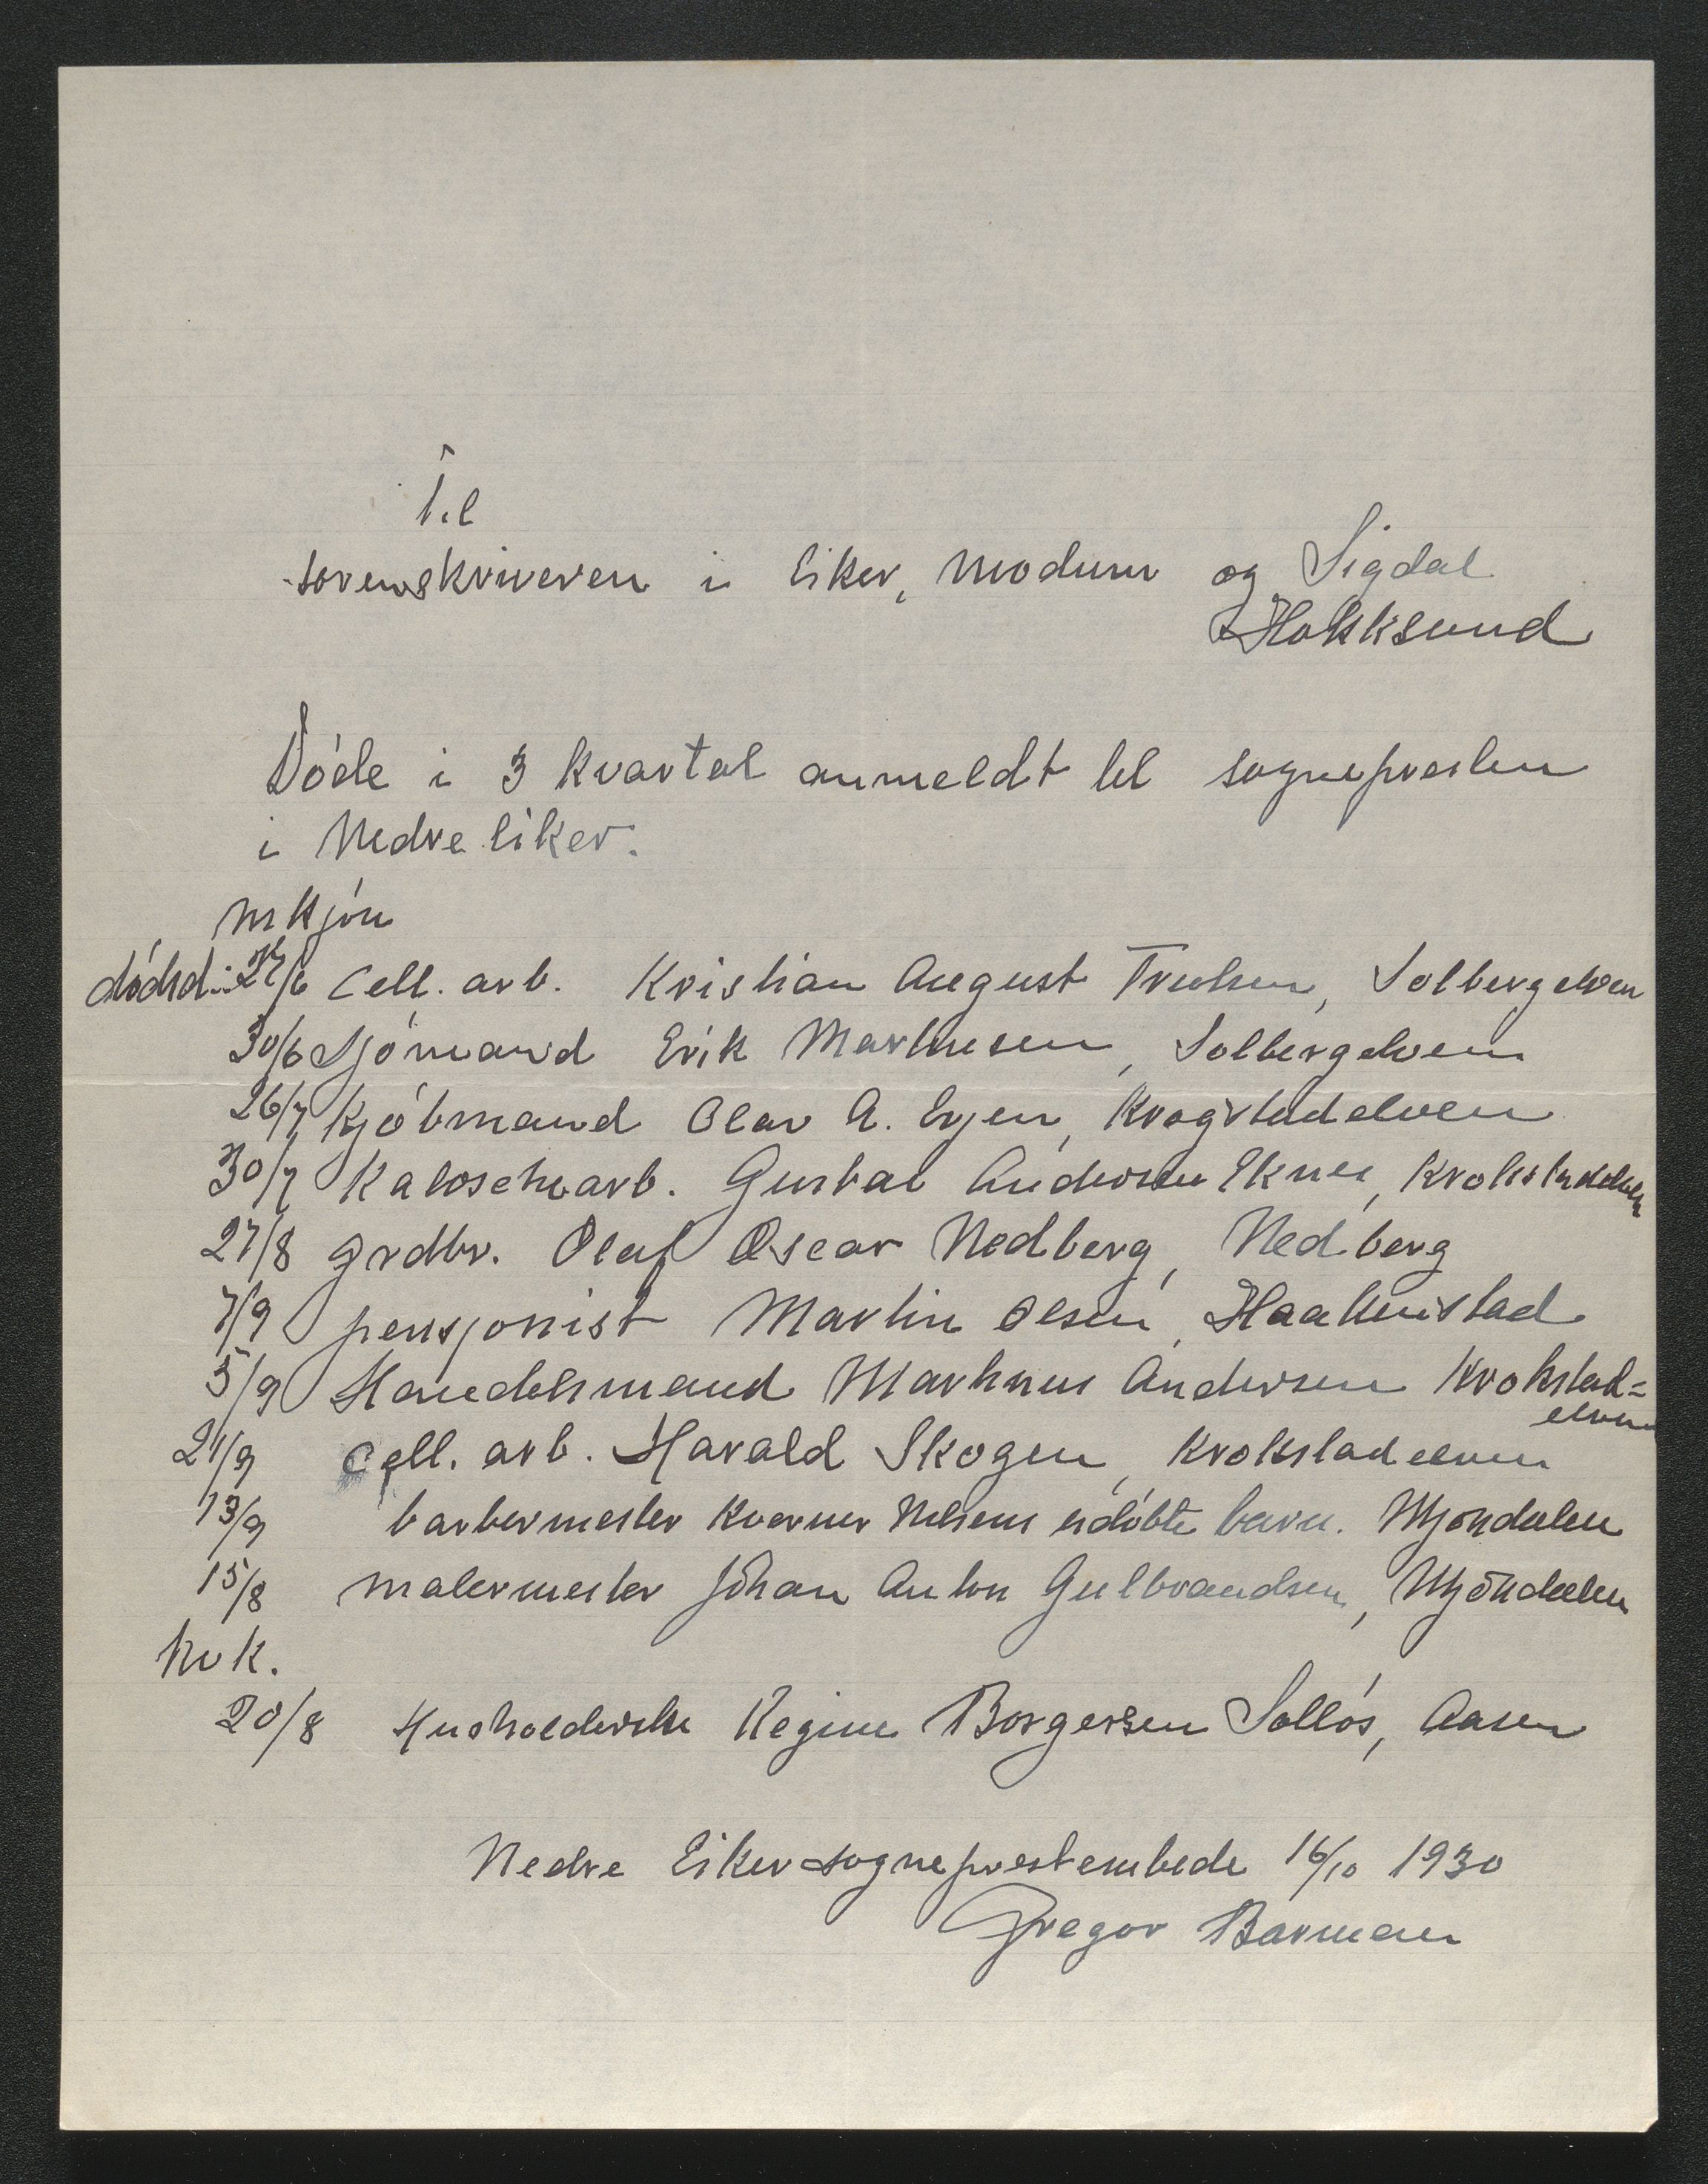 Til
sorenskriveren i Eiker, Modum og Sigdal
Hokksund
Døde i 3 kvartal anmeldt til sognepresten
i Nedre Eiker.
M kjøn
dødsd.: 27/6 Cell. arb. Kristian August Trulsen, Solbergelven
30/6 Sjømand Erik Marthinsen, Solbergelven
26/7 Kjøbmand Olav A. Evjen, Krogstadelven
30/7 Kaloschearb. Gustav Andersen Eknes, Krokstadelven
27/8 grdbr. Olaf Oscar Nedberg, Nedberg
7/9 pensjonist Martin Olsen, Haakenstad
5/9 Handelsmand Markus Andersen Krokstad=
elven
21/9 Cell. arb. Harald Skogen, Krokstadelven
13/9 barbermester Kverner Nilsens udøbte barn. Mjøndalen
15/8 malermester Johan Anton Gulbrandsen, Mjøndalen
Kv k.
20/8 Husholderske Regine Borgersen Solløs, Aasen
Nedre Eiker sogneprestembede 16/10 1930
Gregor Barman